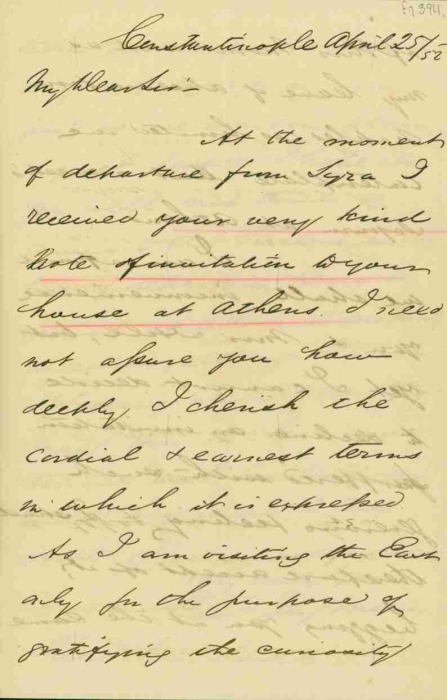 Fy 3941
Constantinople April 25/52
My Dear Sir -
At the moment
of departure from Syra I
received your very kind
Note of invitation to your
house at Athens. I need
not assure you how
deeply I cherish the
cordial & earnest terms
in which it is expressed.
As I am visiting the East
only for the purpose of
gratifying the curiosity